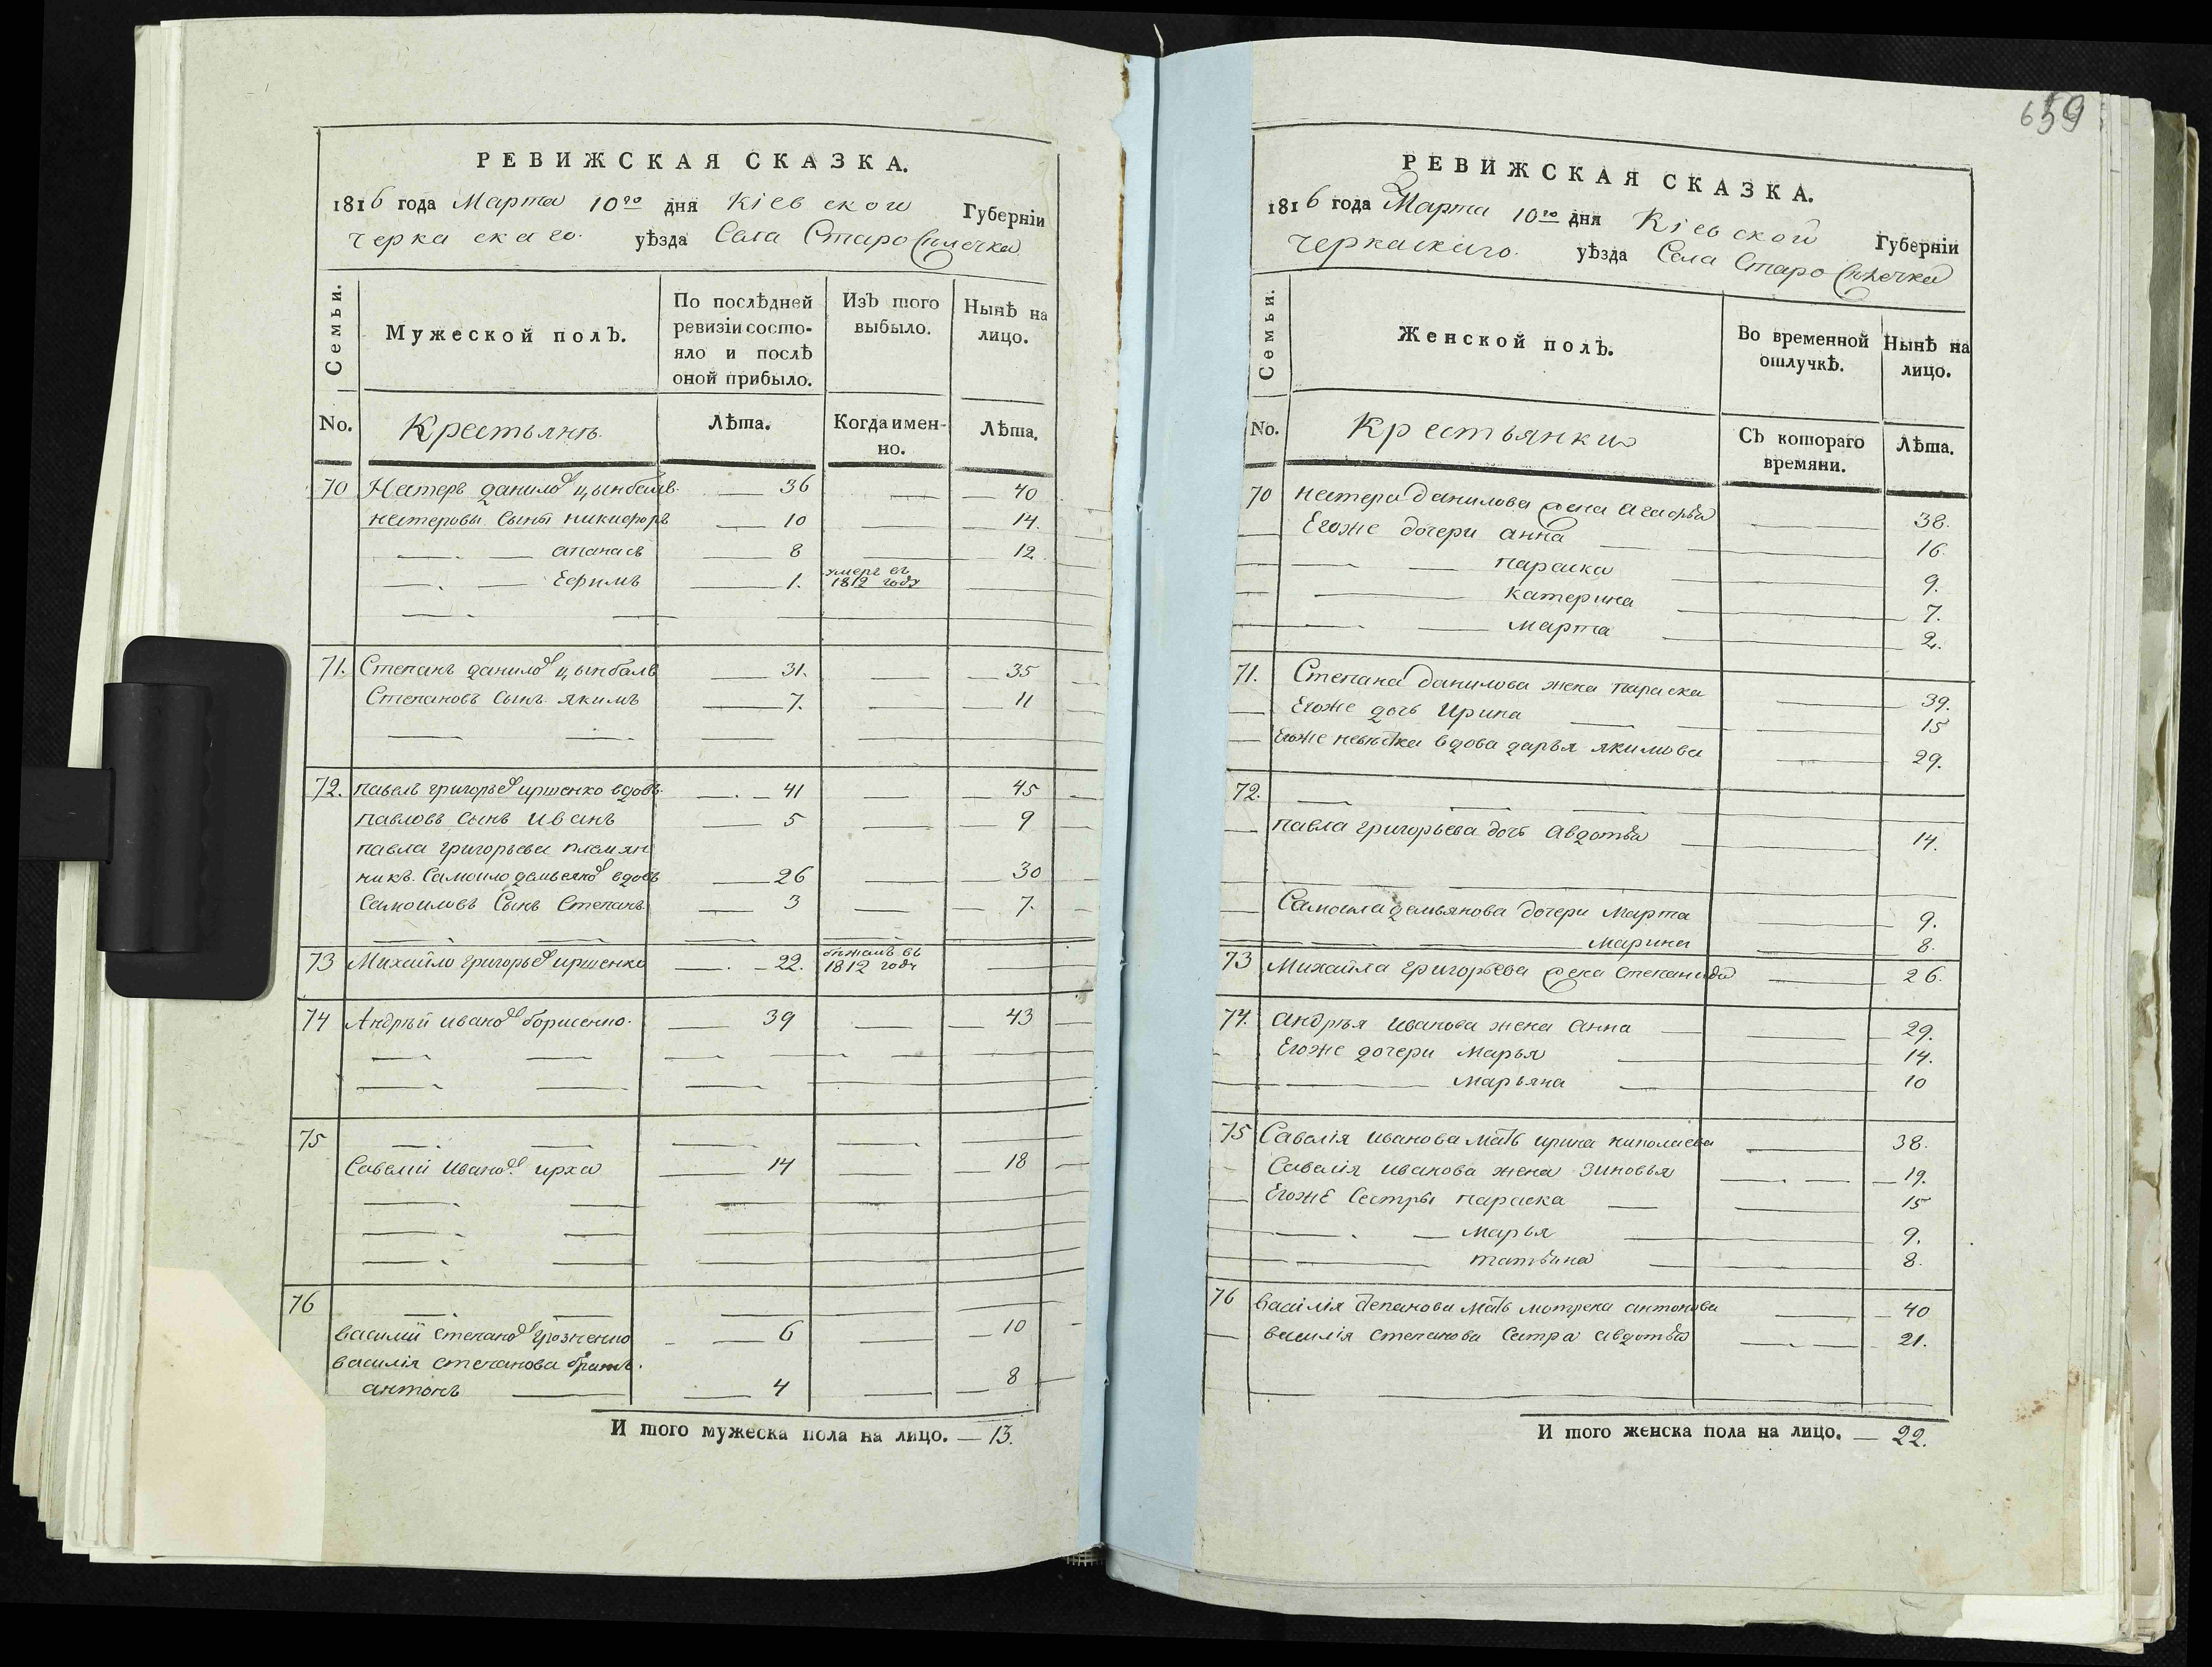 659
РЕВИЖСКАЯ СКАЗКА.
1816 года Марта 10го дня Кіевской Губерніи
черкаскаго. уѣзда Села Старо
Семьи.
Мужеской полъ.
По послѣдней ревизіи состо-
яло и послѣ
оной прибыло.
Изъ того
выбыло.
Нынѣ на
лицо.
No.
Крестьянъ.
Лѣта.
Когда имен-
но.
Лѣта.
70 Нестеръ данилов цынбалъ 36 — 40
нестеровы сыны никифоръ 10 — 14.
апанасъ 8 — 12
Ефимъ 1. умеръ въ 1812 году
71. Степанъ данилов цынбалъ 31. — 35
Степановъ сынъ якимъ 7. — 11
72. павелъ григорьев иршенко вдовъ 41 — 45
павловъ сынъ иванъ 5 — 9
павла григорьева племян
никъ. Самоило демьянов вдовъ 26 — 30
Самоиловъ Сынъ Степанъ 3 — 7.
73 Михайло григорьев иршенко 22. бѣжалъ въ 1812 году
74 Андрѣй иванов борисенко. 39 — 43
75
Савелій иванов ирха 14 — 18
76
василій степанов грозненко 6 — 10
василія степанова братъ.
антонъ 4 — 8
И того мужеска пола на лицо. — 13.
РЕВИЖСКАЯ СКАЗКА.
1816 года Марта 10го дня Кіевской Губерніи
черкаскаго. уѣзда Села Старо
Семьи.
Женской полъ.
Во временной
отлучкѣ.
Нынѣ на
лицо.
No.
Крестьянки
Съ котораго
времяни.
Лѣта.
70 нестера данилова жена агафья 38.
Егоже дочери анна 16.
параска 9.
катерина 7.
марта 2.
71. Степана данилова жена параска 39.
Егоже дочь Ирина 15
Егоже невѣстка вдова дарья якимова 29.
72.
павла григорьева дочь авдотья 14.
Самоила демьянова дочери марта 9.
марина 8.
73 Михайла григорьева жена степанида 26.
74. андрѣя иванова жена анна 29.
Егоже дочери марья 14.
марьяна 10
75 Савелія иванова мать ирина николаева 38.
Савелія иванова жена зиновья 19.
Егоже Сестры параска 15
марья 9.
татьяна 8.
76 василія степанова мать мотрена антонова 40
василія степанова Сестра авдотья 21.
И того женска пола на лицо. — 22.